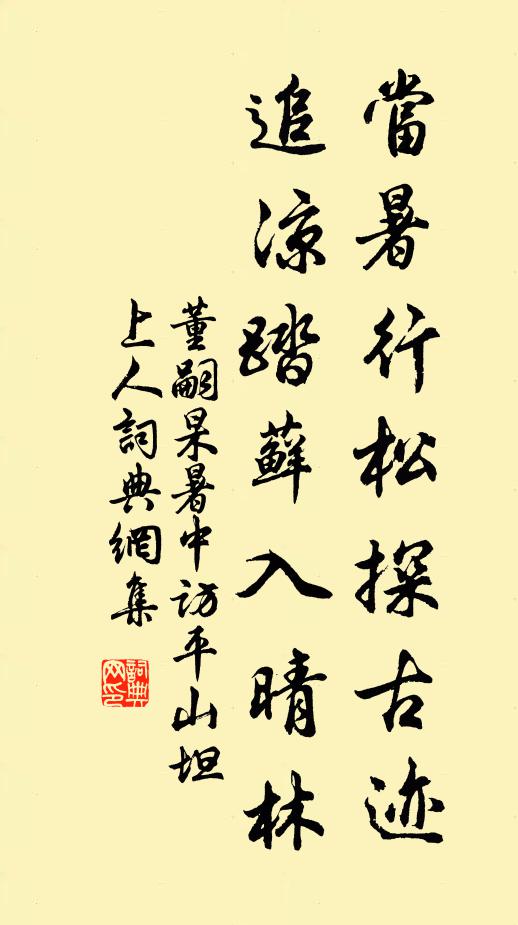 當暑行松探古迹
追凉踏蘚入晴林
董嗣杲暑中访平山坦
上人詞典網集
詞典
网印